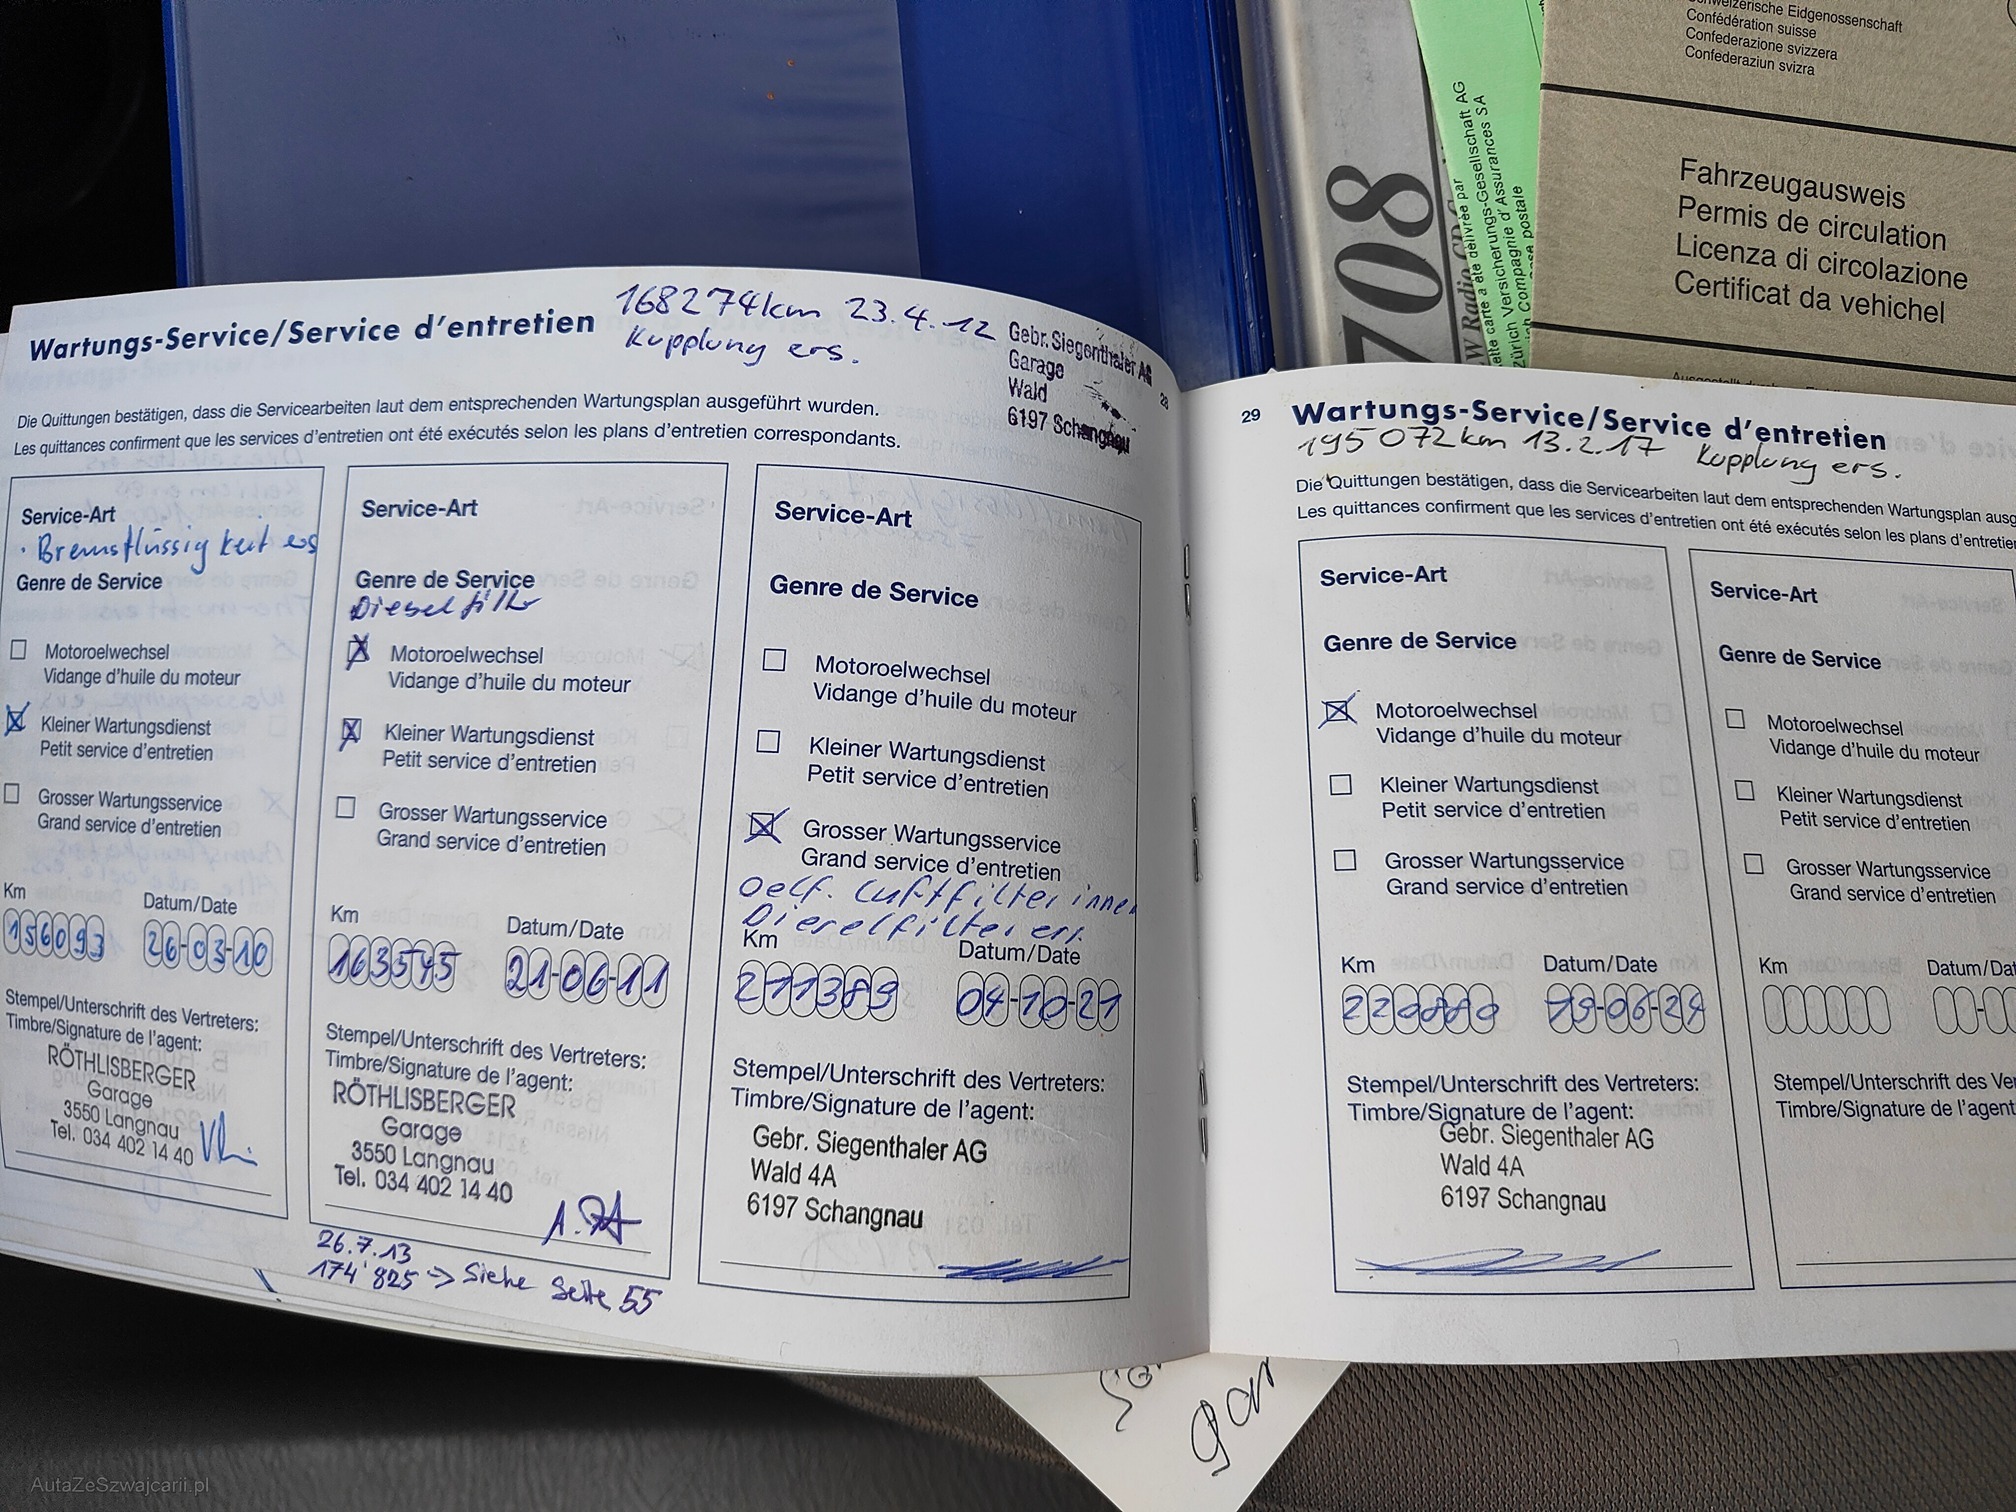 Schweizerische Eidgenossenschaft
Confédération suisse
Confederazione svizzera
Confederaziun svizra
Fahrzeugausweis
Permis de circulation
Licenza di circolazione
Certificat da vehichel
708
VW Radio CD
cette carte a été délivrée par
Zürich Versicherungs-Gesellschaft AG
Zürich Compagnie d'Assurances SA
case postale
Wartungs-Service/Service d'entretien
168274km 23.4.12
Kupplung ers.
Gebr. Siegenthaler AG
Garage
Wald
6197 Schangnau
28
Die Quittungen bestätigen, dass die Servicearbeiten laut dem entsprechenden Wartungsplan ausgeführt wurden.
Les quittances confirment que les services d'entretien ont été exécutés selon les plans d'entretien correspondants.
Service-Art
Bremsflüssigkeit ers
Genre de Service
Motoroelwechsel
Vidange d'huile du moteur
Kleiner Wartungsdienst
Petit service d'entretien
Grosser Wartungsservice
Grand service d'entretien
Km
Datum/Date
156093
26-03-10
Stempel/Unterschrift des Vertreters:
Timbre/Signature de l'agent:
RÖTHLISBERGER
Garage
3550 Langnau
Tel. 034 402 14 40
Service-Art
Genre de Service
Dieselfilter
Motoroelwechsel
Vidange d'huile du moteur
Kleiner Wartungsdienst
Petit service d'entretien
Grosser Wartungsservice
Grand service d'entretien
Km
Datum/Date
163545
21-06-11
Stempel/Unterschrift des Vertreters:
Timbre/Signature de l'agent:
RÖTHLISBERGER
Garage
3550 Langnau
Tel. 034 402 14 40
26.7.13
174'825 -> Siehe Seite 55
Service-Art
Genre de Service
Motoroelwechsel
Vidange d'huile du moteur
Kleiner Wartungsdienst
Petit service d'entretien
Grosser Wartungsservice
Grand service d'entretien
Oelf. Luftfilter innen
Dieselfilter ers.
Km
Datum/Date
211389
04-10-21
Stempel/Unterschrift des Vertreters:
Timbre/Signature de l'agent:
Gebr. Siegenthaler AG
Wald 4A
6197 Schangnau
29
Wartungs-Service/Service d'entretien
195072km 13.2.17 Kupplung ers.
Die Quittungen bestätigen, dass die Servicearbeiten laut dem entsprechenden Wartungsplan ausg
Les quittances confirment que les services d'entretien ont été exécutés selon les plans d'entretien
Service-Art
Genre de Service
Motoroelwechsel
Vidange d'huile du moteur
Kleiner Wartungsdienst
Petit service d'entretien
Grosser Wartungsservice
Grand service d'entretien
Km
Datum/Date
220880
19-06-24
Stempel/Unterschrift des Vertreters:
Timbre/Signature de l'agent:
Gebr. Siegenthaler AG
Wald 4A
6197 Schangnau
Service-Art
Genre de Service
Motoroelwechsel
Vidange d'huile du moteur
Kleiner Wartungsdienst
Petit service d'entretien
Grosser Wartungsservice
Grand service d'entretien
Km
Datum/Dat
Stempel/Unterschrift des Ve
Timbre/Signature de l'agent
AutaZeSzwajcarii.pl